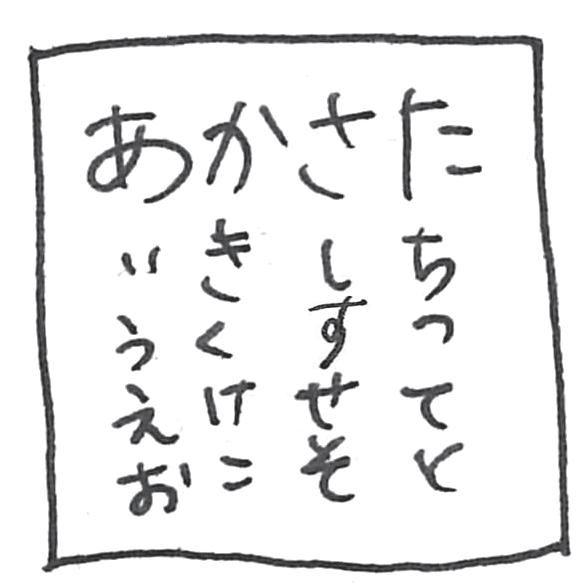 あかさた
いきしち
うくすつ
えけせて
おこそと